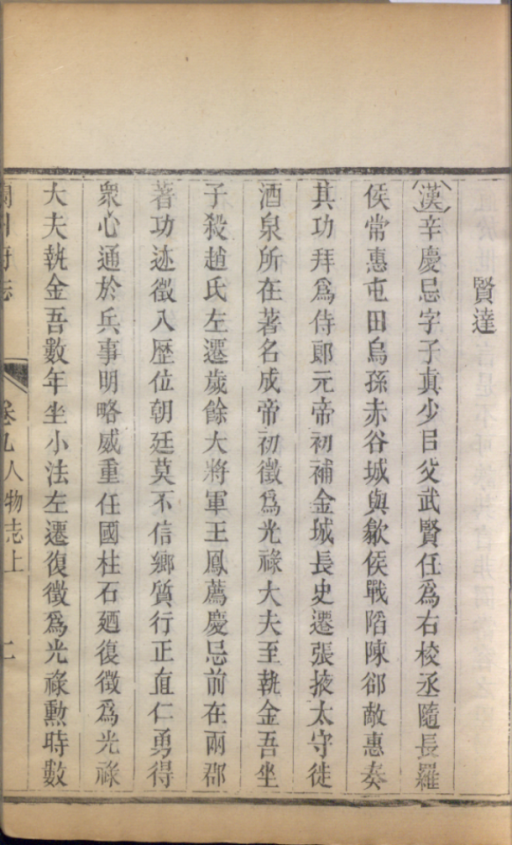 賢達
漢辛慶忌字子真少㠯父武賢任爲右校丞隨長羅
侯常惠屯田烏孫赤谷城與歙侯戰陷陳卻敵惠奏
其功拜爲侍郎元帝初補金城長史遷張掖太守徙
酒泉所在著名成帝初徵爲光祿大夫至執金吾坐
子殺趙氏左遷歲餘大將軍王鳳薦慶忌前在兩郡
著功迹徵入歷位朝廷莫不信鄉質行正直仁勇得
衆心通於兵事明略威重任國柱石廼復徵爲光祿
大夫執金吾數年坐小法左遷復徵爲光祿勲時數
卷九人物志上 二